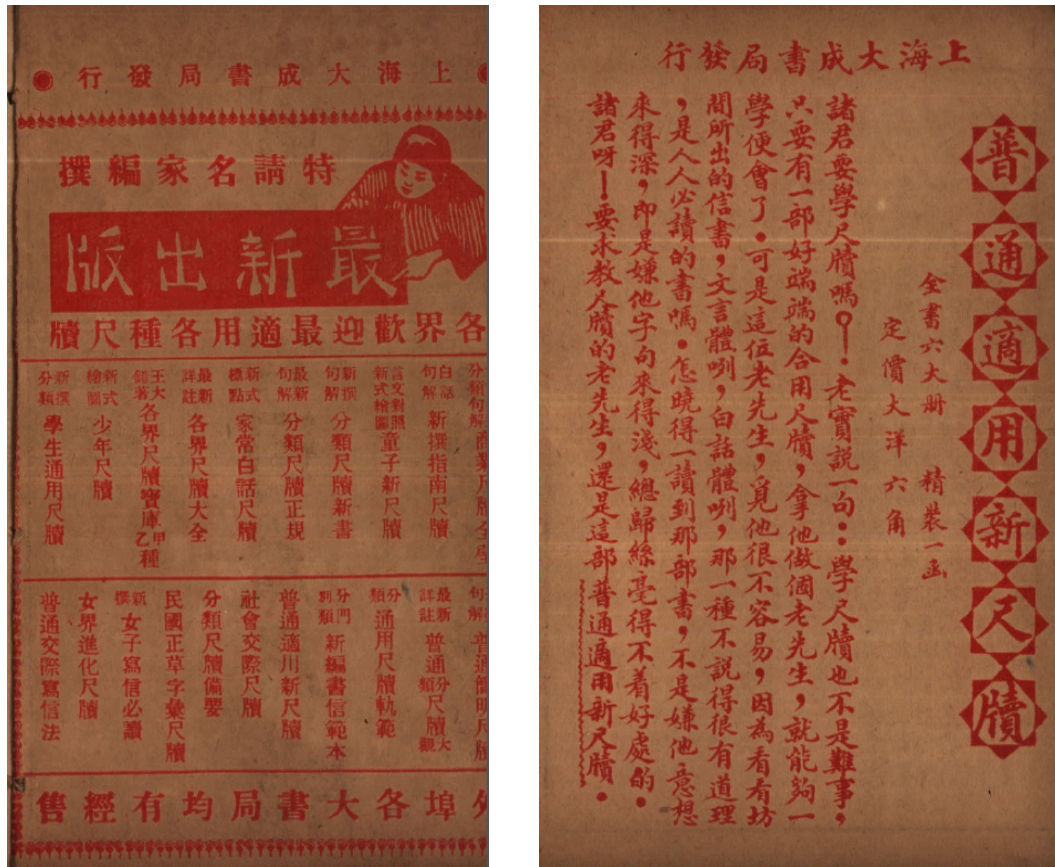 上海大成書局發行
特請名家編撰
最新出版
各界歡迎最適用各種尺牘
分類句解商業尺牘全
白話句解新撰指南尺牘
言文對照新式繪圖童子新尺牘
新撰句解分類尺牘新書
最新句解分類尺牘正規
新式標點家常白話尺牘
最新詳註各界尺牘大全
王大錯著各界尺牘寶庫甲乙種
新式繪圖少年尺牘
新撰分類學生通用尺牘
句解普通簡明尺牘
最新詳註普通分類尺牘大觀
分類通用尺牘軌範
分門別類新編書信範本
普通適用新尺牘
社會交際尺牘
分類尺牘備要
民國正草字彙尺牘
新撰女子寫信必讀
女界進化尺牘
普通交際寫信法
外埠各大書局均有經售
上海大成書局發行
普通適用新尺牘
全書六大册 精裝一函
定價大洋六角
諸君要學尺牘嗎？！老實説一句：學尺牘也不是難事，
只要有一部好端端的合用尺牘，拿他做個老先生，就能夠一
學便會了。可是這位老先生，覓他很不容易，因為看看坊
間所出的信書，文言體咧，白話體咧，那一種不説得很有道理
，是人人必讀的書嗎。怎曉得一讀到那部書，不是嫌他意想
來得深，即是嫌他字句來得淺，總歸絲毫得不着好處的。
諸君呀！要求教尺牘的老先生，還是這部普通適用新尺牘。